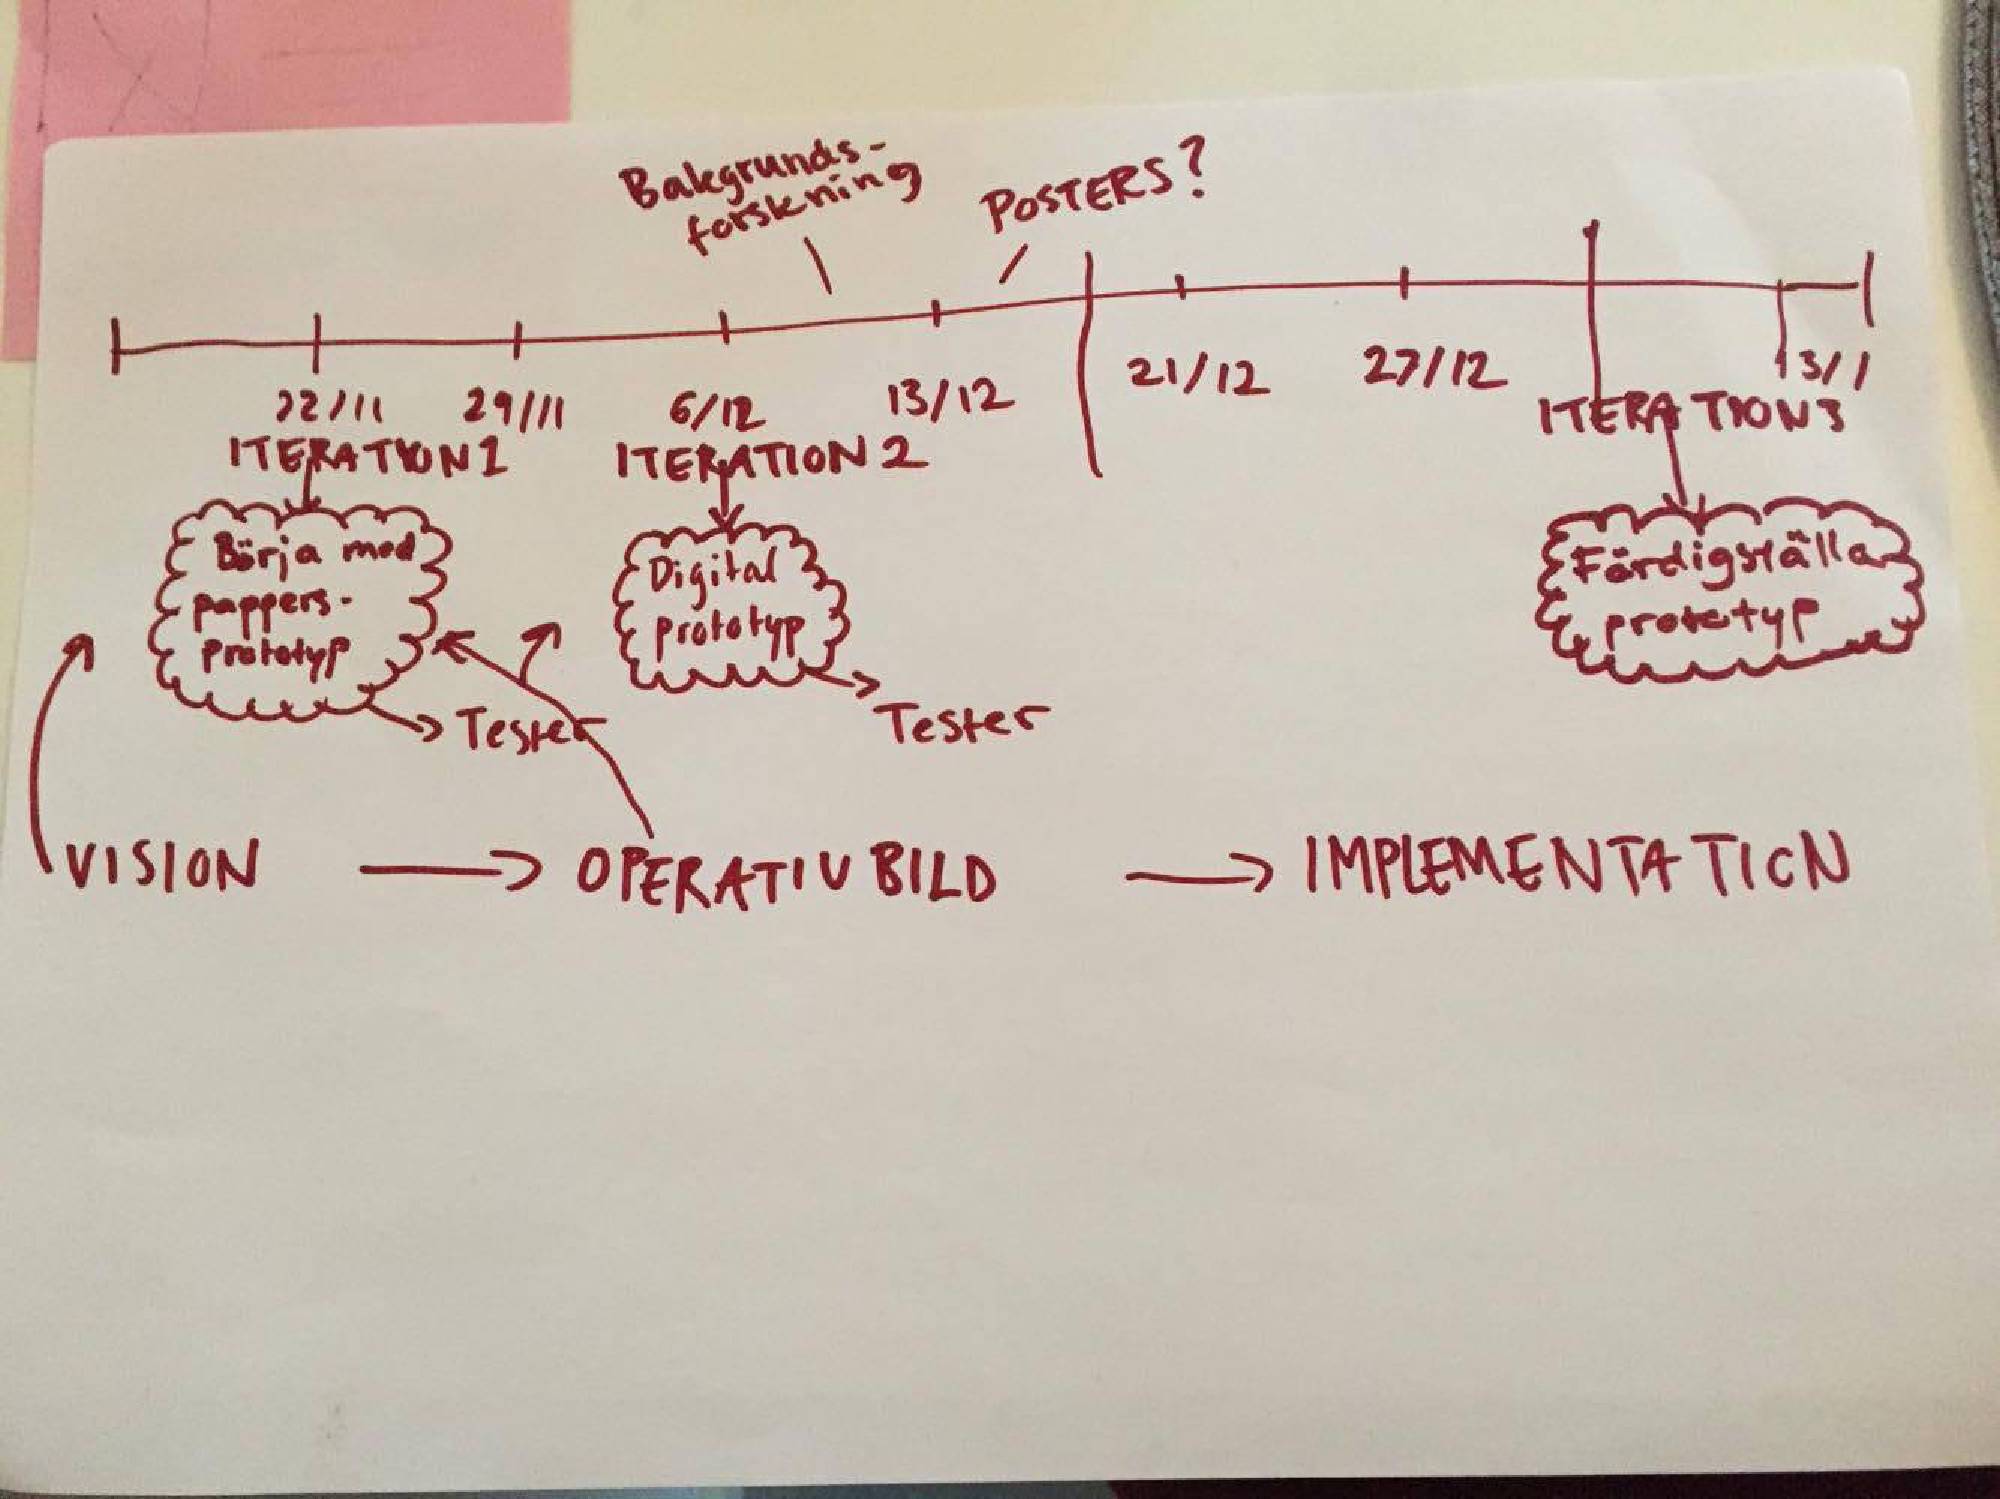 Bakgrunds-
forskning
POSTERS?
22/11
29/11
6/12
13/12
21/12
27/12
13/1
ITERATION 1
ITERATION 2
ITERATION 3
Börja med
pappers-
prototyp
Digital
prototyp
Färdigställa
prototyp
Tester
Tester
VISION → OPERATIV BILD → IMPLEMENTATION